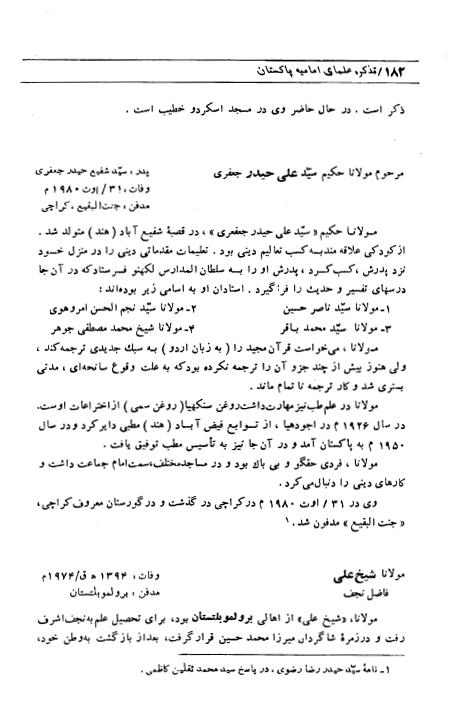 ۱۸۲/تذکره علمای امامیه پاکستان
ذکر است. در حال حاضر وی در مسجد اسکردو خطیب است.
مرحوم مولانا حکیم سیّد علی حیدر جعفری
پدر، سیّد شفیع حیدر جعفری
وفات، ۳۱/اوت ۱۹۸۰ م
مدفن، جنت‌البقیع، کراچی
مولانا حکیم «سیّد علی حیدر جعفری»، در قصبهٔ شفیع آباد (هند) متولد شد.
از کودکی علاقه‌مند به کسب تعالیم دینی بود. تعلیمات مقدماتی دینی را در منزل خود
نزد پدرش، کسب کرد، پدرش او را به سلطان‌المدارس لکهنو فرستاد که در آن جا
درسهای تفسیر و حدیث را فرا گیرد. استادان او به اسامی زیر بوده‌اند:
۱ـ مولانا سیّد ناصر حسین ۲ـ مولانا سیّد نجم الحسن امروهوی
۳ـ مولانا سیّد محمد باقر ۴ـ مولانا شیخ محمد مصطفی جوهر
مولانا، می‌خواست قرآن مجید را (به زبان اردو) به سبک جدیدی ترجمه کند،
ولی هنوز بیش از چند جزو آن را ترجمه نکرده بود که به علت وقوع سانحه‌ای، مدتی
بستری شد و کار ترجمه نا تمام ماند.
مولانا در علم طب نیز مهارت داشت روغن سنکهیا (روغن سمی) از اختراعات اوست.
در سال ۱۹۲۶ م در اجودهیا، از توابع فیض آباد (هند) مطبی دایر کرد و در سال
۱۹۵۰ م به پاکستان آمد و در آن جا نیز به تأسیس مطب توفیق یافت.
مولانا، فردی حقگو و بی باک بود و در مساجد مختلف، سمت امام جماعت داشت و
کارهای دینی را دنبال می‌کرد.
وی در ۳۱/اوت ۱۹۸۰ م در کراچی در گذشت و در گورستان معروف کراچی،
«جنت البقیع» مدفون شد.۱
مولانا شیخ علی
فاضل نجف
وفات، ۱۳۹۴ ه ق/۱۹۷۴م
مدفن، برولمو بلتستان
مولانا، «شیخ علی» از اهالی برولمو بلتستان بود، برای تحصیل علم به نجف اشرف
رفت و در زمرهٔ شاگردان میرزا محمد حسین قرار گرفت، بعد از بازگشت به وطن خود،
۱ـ نامهٔ سیّد حیدر رضا رضوی، در پاسخ سید محمد ثقلین کاظمی.